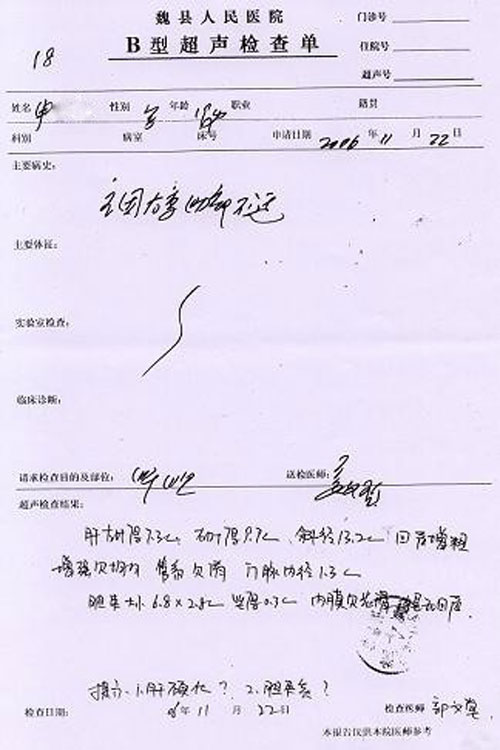 魏县人民医院
B型超声检查单
门诊号
住院号
超声号
18
姓名 申 性别 年龄 职业 籍贯
科别 病室 床号 申请日期 2006 年 11 月 22 日
主要病史:
主要体征:
实验室检查:
临床诊断:
请求检查目的及部位: 送检医师:
超声检查结果:
肝左叶厚7.3c 右叶厚9.7c 斜径13.2c 回声增粗
增强欠均匀 欠清 门脉内径1.3c
胆囊大小 6.8×2.8c 壁厚0.3c 内膜欠光滑
提示:1.肝硬化? 2.胆囊炎?
检查日期: 06 年 11 月 22 日 检查医师
本报告仅供本院医师参考